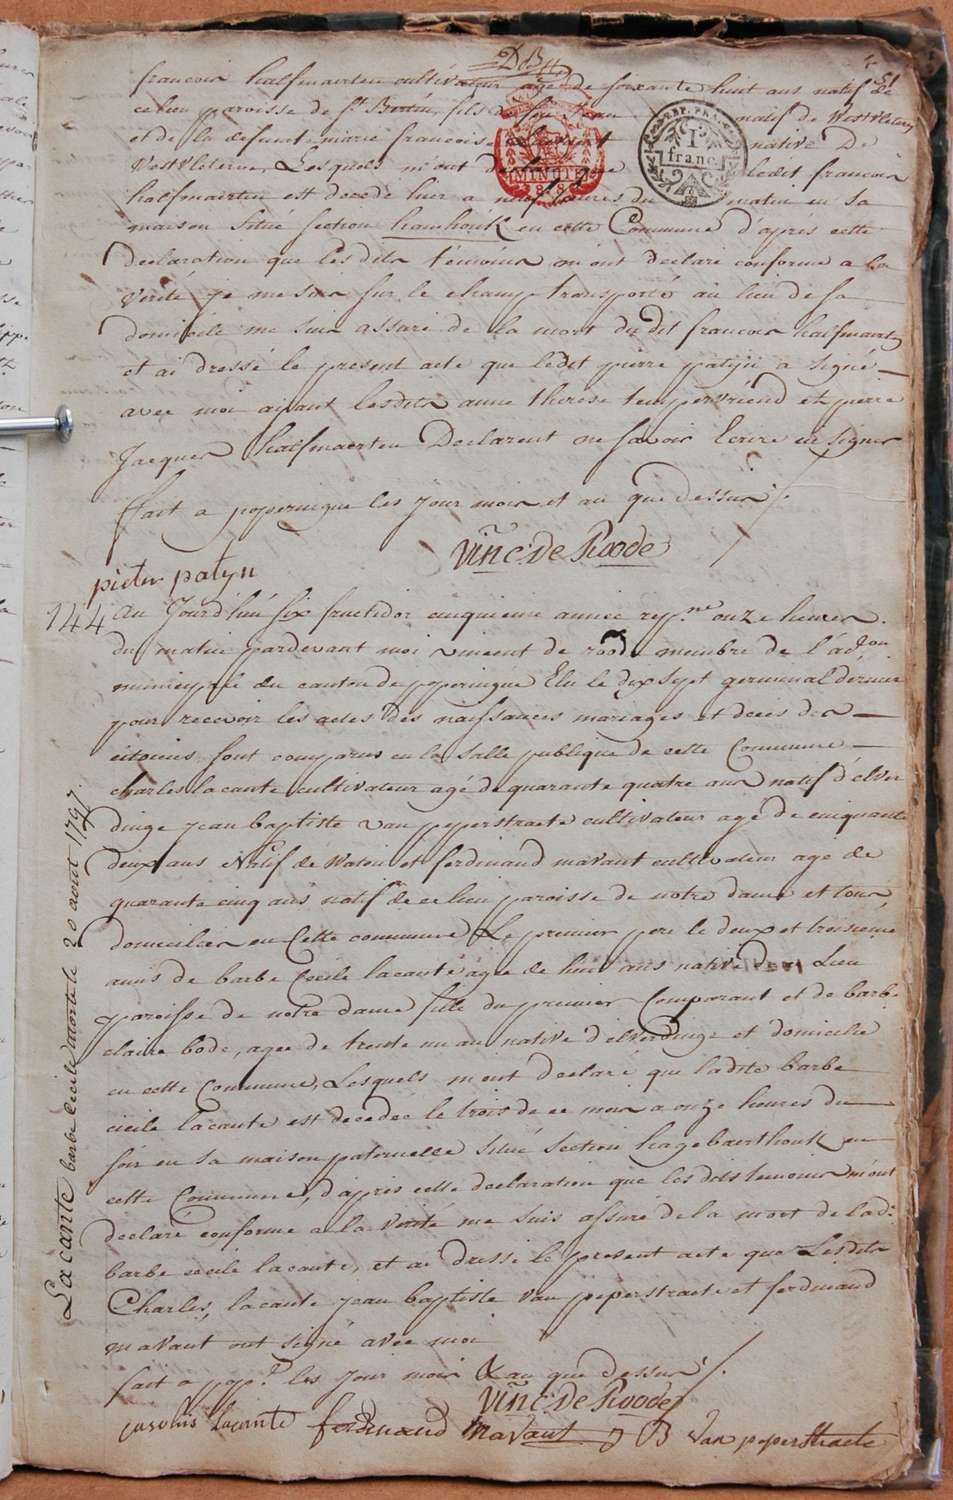 DB
51
francois halfmaerten cultivateur agé de soixante huit ans natif de
ce lieu paroisse de St Bertin, fils de feu Jean natif de Westvleteren
et de la defunte marie francoise native De
Vestvleteren, Lesquels m'ont declaré que ledit francois
halfmaerten est decedé hier a neuf heures du matin en sa
maison situé section hamhouk en cette Commune d'après cette
declaration que lesdits témoins m'ont declaré conforme a la
verité je me suis sur le champ transporté au lieu de sa
domicile me suis assuré de la mort du dit francois halfmaerten
et ai dressé le present acte que ledit pierre patyn a signé
avec moi aijant lesdits anne therese tempervriend et pierre
Jacques halfmaerten Declarent ne savoir Ecrire ni signer
fait a poperingue les jour mois et an que dessus /.
Vinc: De Roode
pieter patyn
144 au Jourd'hui six fructidor cinquieme année repne onze heures
du matin pardevant moi vincent de roode membre de l'adon
municiple du canton de poperingue Elu le dix sept germinal dernier
pour recevoir les actes des naissances mariages et decès des
citoiens sont comparus en la salle publique de cette Commune
charles lacante cultivateur agé de quarante quatre ans natif d'elver
dinge jean baptiste van peperstraete cultivateur agé de cinquante
deux ans Natif de watou et ferdinand mavaut cultivateur agé de
quarante cinq ans natif de ce lieu paroisse de notre dame et tous
domicilies en cette commune Le premier pere le deux et troisieme
amis de barbe cecile lacante agee de huit ans native de ce Lieu
paroisse de notre dame fille du premier Comparant et de barbe
claire bode, agee de trente un an native d'elverdinge et domicilie
en cette Commune, Lesquels m'ont declaré que ladite barbe
cicile lacante est decedée le trois de ce mois a onze heures du
soir en sa maison paternelle situé section hagebaerthouk en
cette Commune, d'après cette declaration que lesdits temoins m'ont
declaré conforme a la verité me suis assuré de la mort de lad:
barbe cecile lacante, et ai dressé le present acte que Lesdits
Charles, lacante jean baptiste van peperstraete et ferdinand
mavaut ont signé avec moi
fait a pope. les jour mois & an que dessus /.
Vinc: De Roode
carolus lacante ferdinand Mavaut J B Van peperstraete
Lacante barbe cecile morte le 20 août 1797.
MINUTE
1 franc